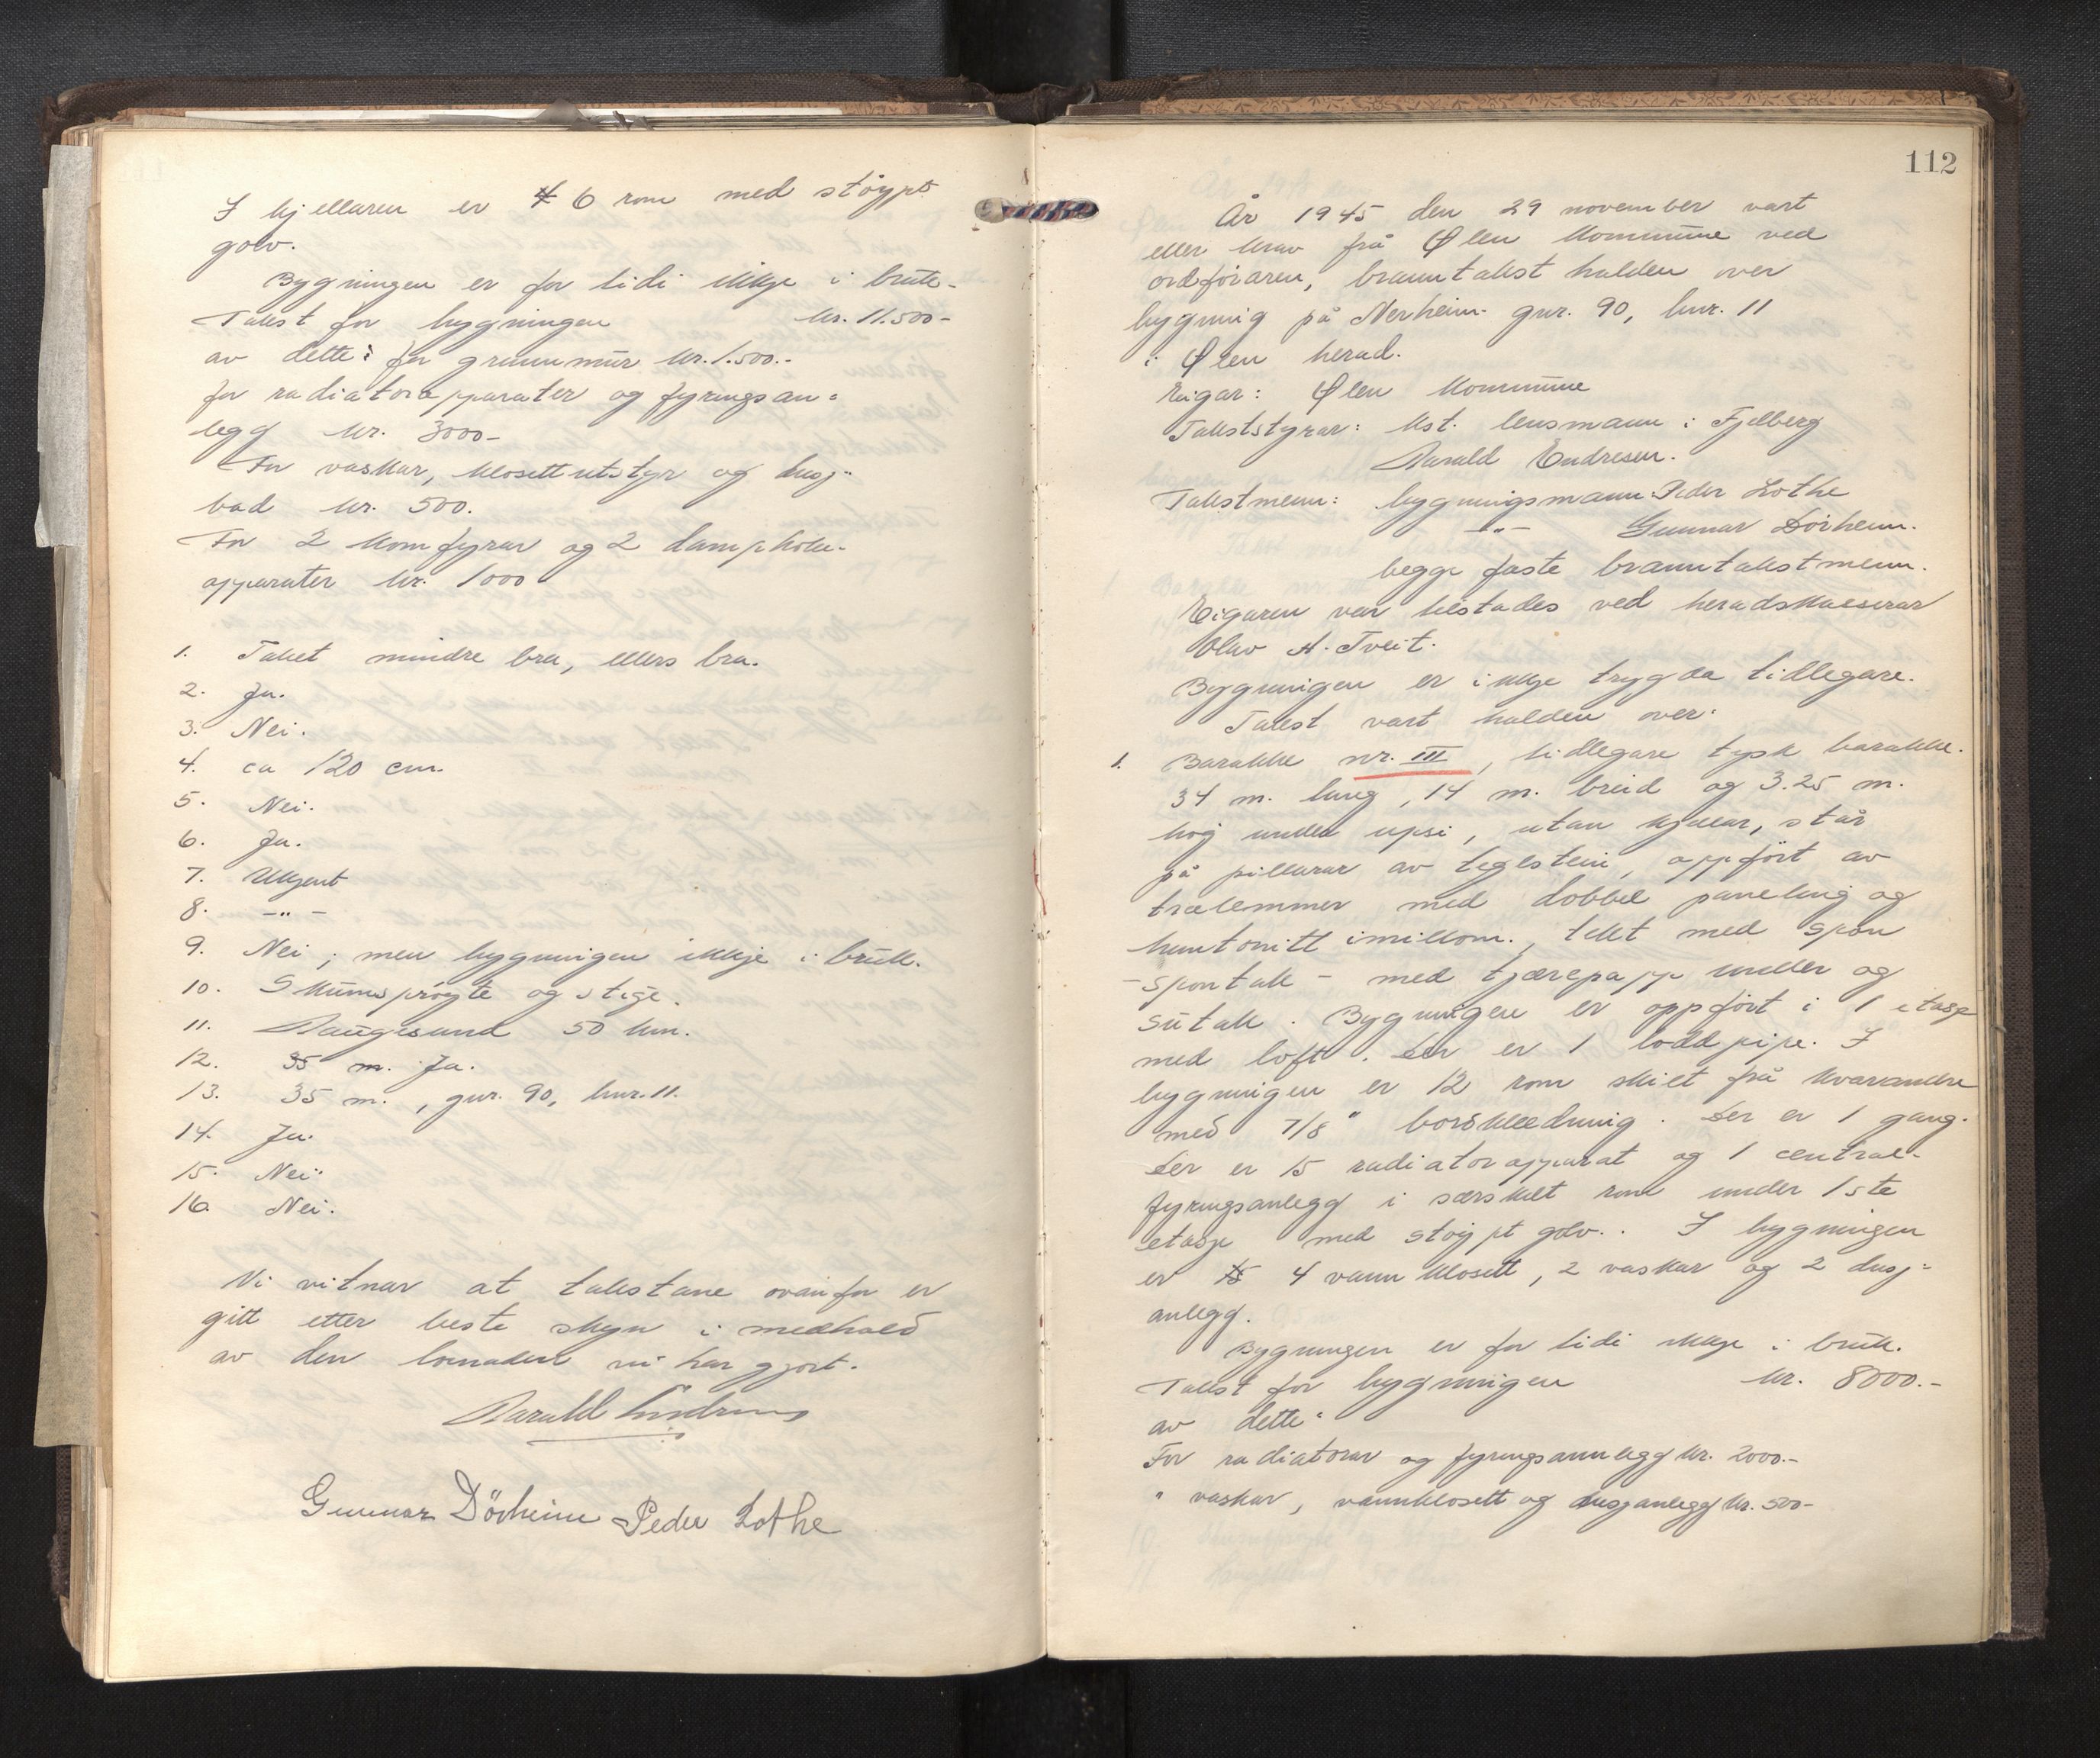 I kjellaren er 6 rom med støypt
golv.
Bygningen er for tidi ikkje i bruk.
Takst for bygningen kr. 11.500-
av dette: for grunnmur kr. 1.500.-
for radiatorapparater og fyringsan=
legg kr. 3000-
For vaskar, klosettutstyr og dusj-
bad kr. 500.
For 2 komfyrar og 2 dampkoke-
apparater kr. 1000
1. Taket mindre bra, ellers bra.
2. Ja.
3. Nei.
4. ca 120 cm.
5. Nei.
6. Ja.
7. Ukjent
8. -"-
9. Nei, men bygningen ikkje i bruk.
10. Skumsprøyte og stige.
11. Haugesund 50 km.
12. 35 m. Ja.
13. 35 m., gnr. 90, bnr. 11.
14. Ja.
15. Nei
16. Nei.
Vi vitnar at takstane ovanfor er
gitt etter beste skyn i medhald
av den lovnaden vi har gjort.
Harald Endresen
Gunnar Dörheim Peder Lothe
112
År 1945 den 29 november vart
etter krav frå Ølen kommune ved
ordføraren, branntakst halden over
bygning på Nerheim gnr. 90, bnr. 11
i Ølen herad.
Eigar: Ølen kommune
Takststyrar: kst. lensmann i Fjelberg
Harald Endresen.
Takstmenn: bygningsmann Peder Lothe
-"- Gunnar Dörheim.
begge faste branntakstmenn.
Eigaren var tilstades ved heradskasserar
Olav H. Tveit.
Bygningen er ikkje trygda tidlegare.
Takst vart halden over:
1. Barakke nr. III, tidlegare tysk barakke.
34 m. lang, 14 m. breid og 3.25 m.
høg under upsi, utan kjellar, står
på pillarar av teglstein, oppført av
trelemmer med dobbel paneling og
huntonitt imillom., tekt med spon
-spontak- med tjærepapp under og
sutak. Bygningen er oppført i 1 etasje
med loft. Der er 1 loddpipe. I
bygningen er 12 rom skilt frå kvarandre
med 7/8" bordkledning. Der er 1 gang.
Der er 15 radiatorapparat og 1 central-
fyringsanlegg i særskilt rom under 1ste
etasje med støypt golv.. I bygningen
er 4 vannklosett, 2 vaskar og 2 dusj=
anlegg.
Bygningen er for tidi ikkje i bruk.
Takst for bygningen kr. 8000.-
av dette:
For radiatorar og fyringsannlegg kr. 2000.-
" vaskar, vannklosett og dusjanlegg kr. 500-